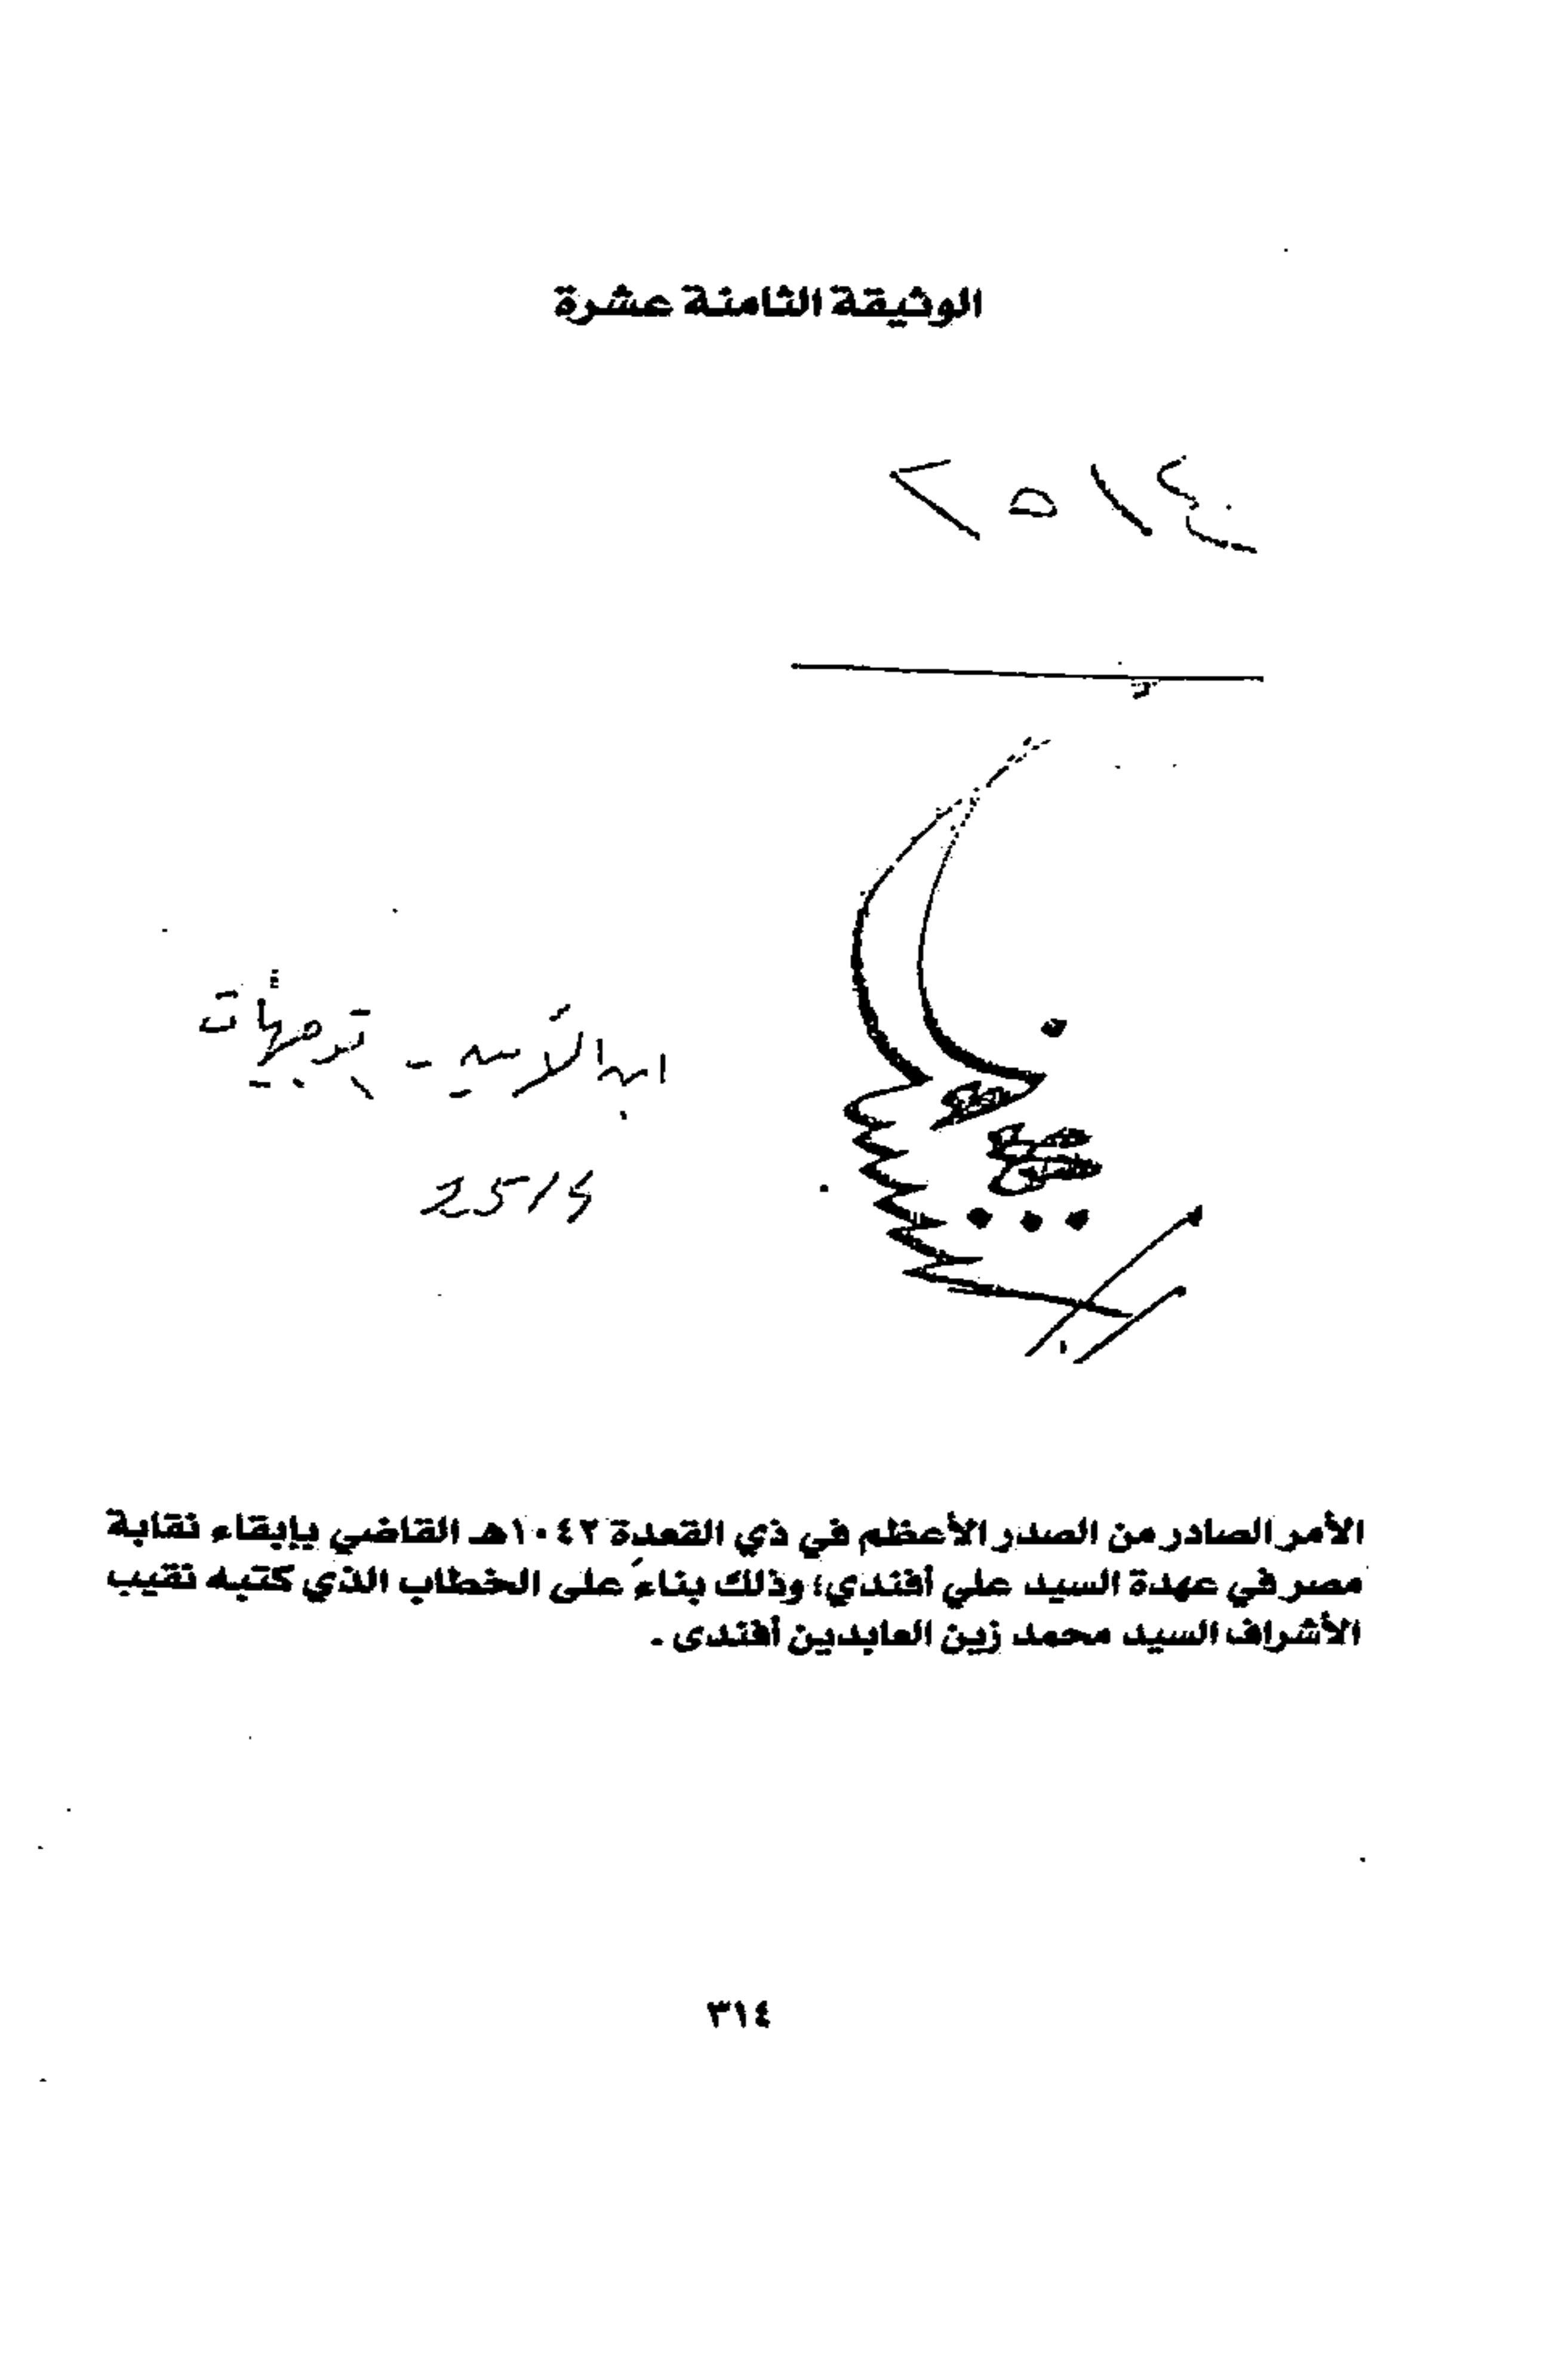 الوثيقة الثامنة عشرة
ابن الأمين - توجيهات
الأمر الصادر من الصدر الأعظم في ذي القعدة ١٠٤٢هـ القاضي بإبقاء نقابة
مصر في عهدة السيد علي أفندي؛ وذلك بناءً على الخطاب الذي كتبه نقيب
الأشراف السيد محمد زين العابدين أفندى .
٣١٤